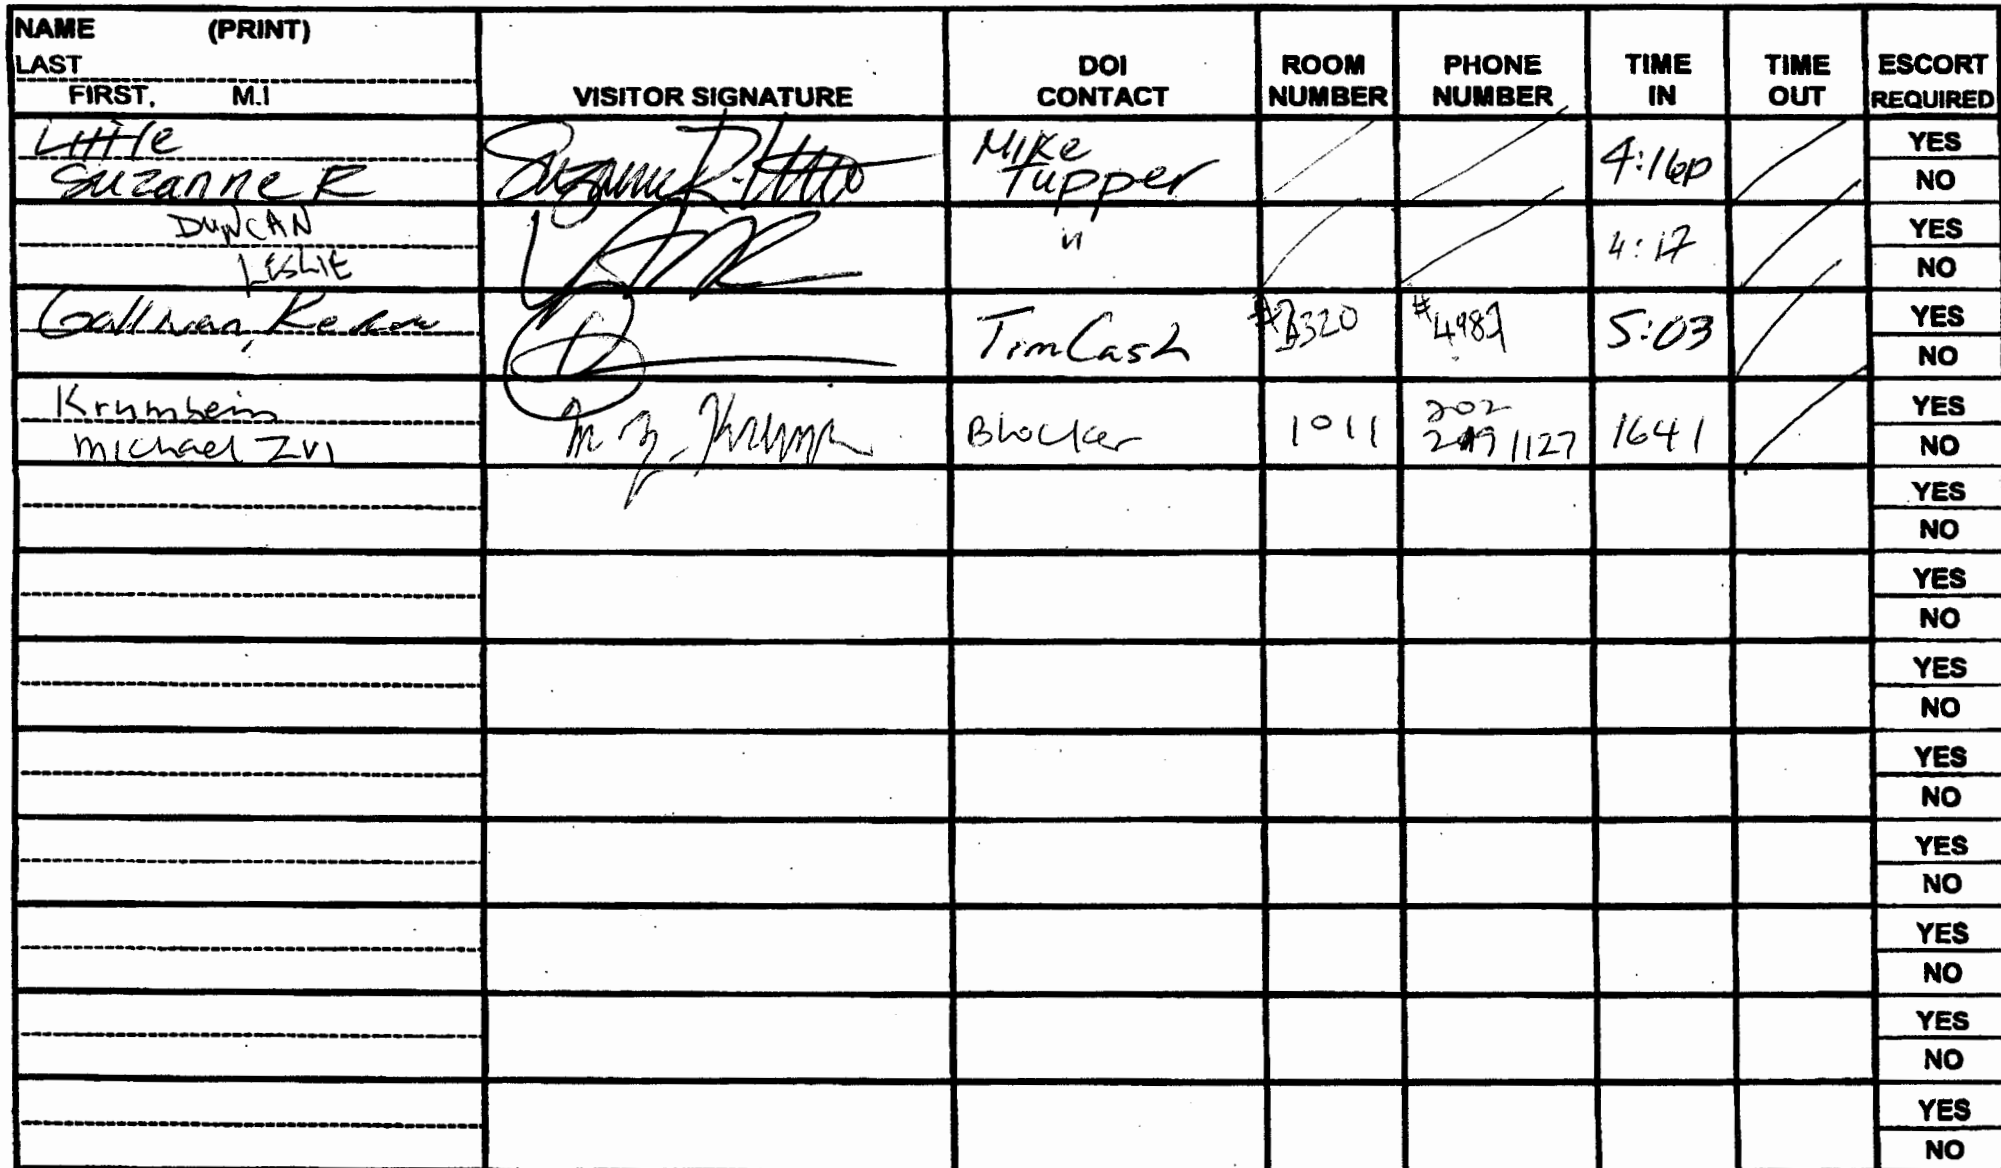 NAME (PRINT)
LAST
FIRST, M.I
VISITOR SIGNATURE
DOI
CONTACT
ROOM
NUMBER
PHONE
NUMBER
TIME
IN
TIME
OUT
ESCORT
REQUIRED
Little
Suzanne R
Suzanne R. Little
Mike
Tupper
4:16p
YES
NO
DUNCAN
LESLIE
"
4:17
YES
NO
Gallivan,
Tim Cash
5:03
YES
NO
Krumbein
Michael Zvi
Blocker
1011
202
1127
1641
YES
NO
YES
NO
YES
NO
YES
NO
YES
NO
YES
NO
YES
NO
YES
NO
YES
NO